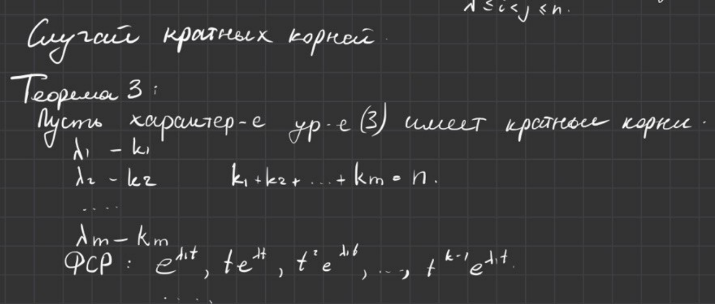 1 ≤ i < j ≤ n.
Случай кратных корней
Теорема 3:
Пусть характер-е ур-е (3) имеет кратные корни.
λ₁ – k₁
λ₂ – k₂ k₁+k₂+...+km = n.
....
λm – km
ФСР: e^λ₁t, te^λt, t²e^λ₁t, ..., t^k-1 e^λ₁t.
....,